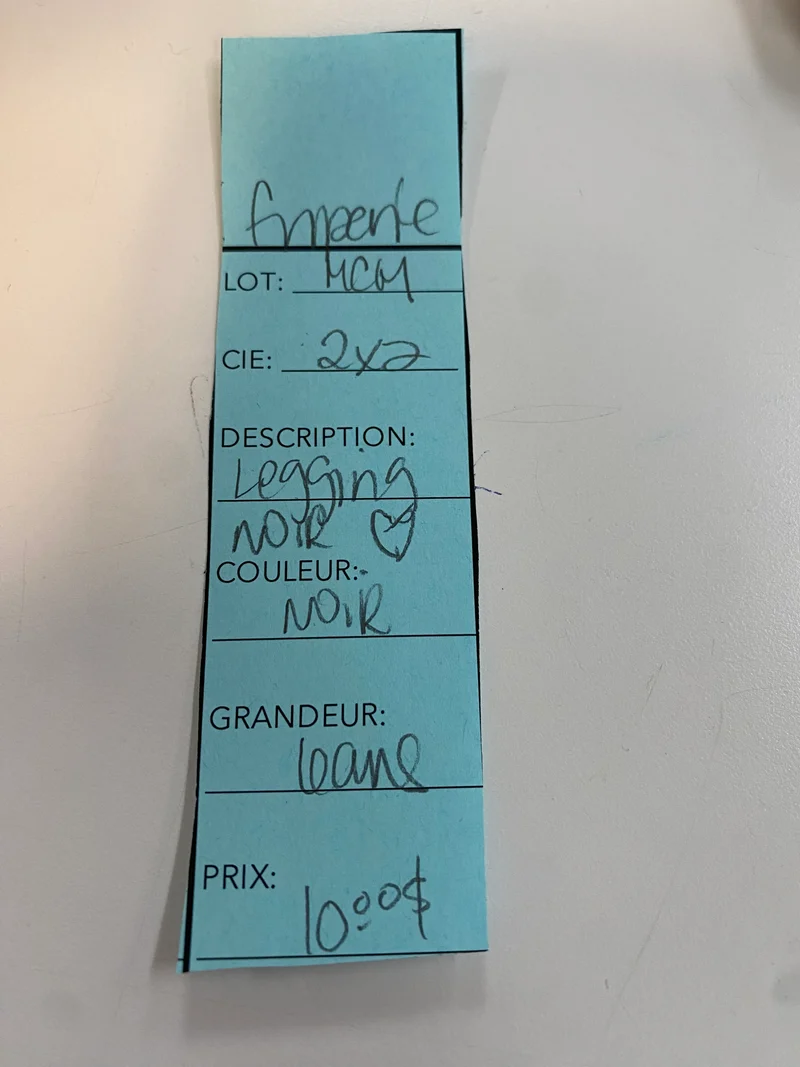 LOT: MCM
CIE: 2x2
DESCRIPTION:
Legging
NOIR
COULEUR:
NOIR
GRANDEUR:
6ans
PRIX:
10.00$